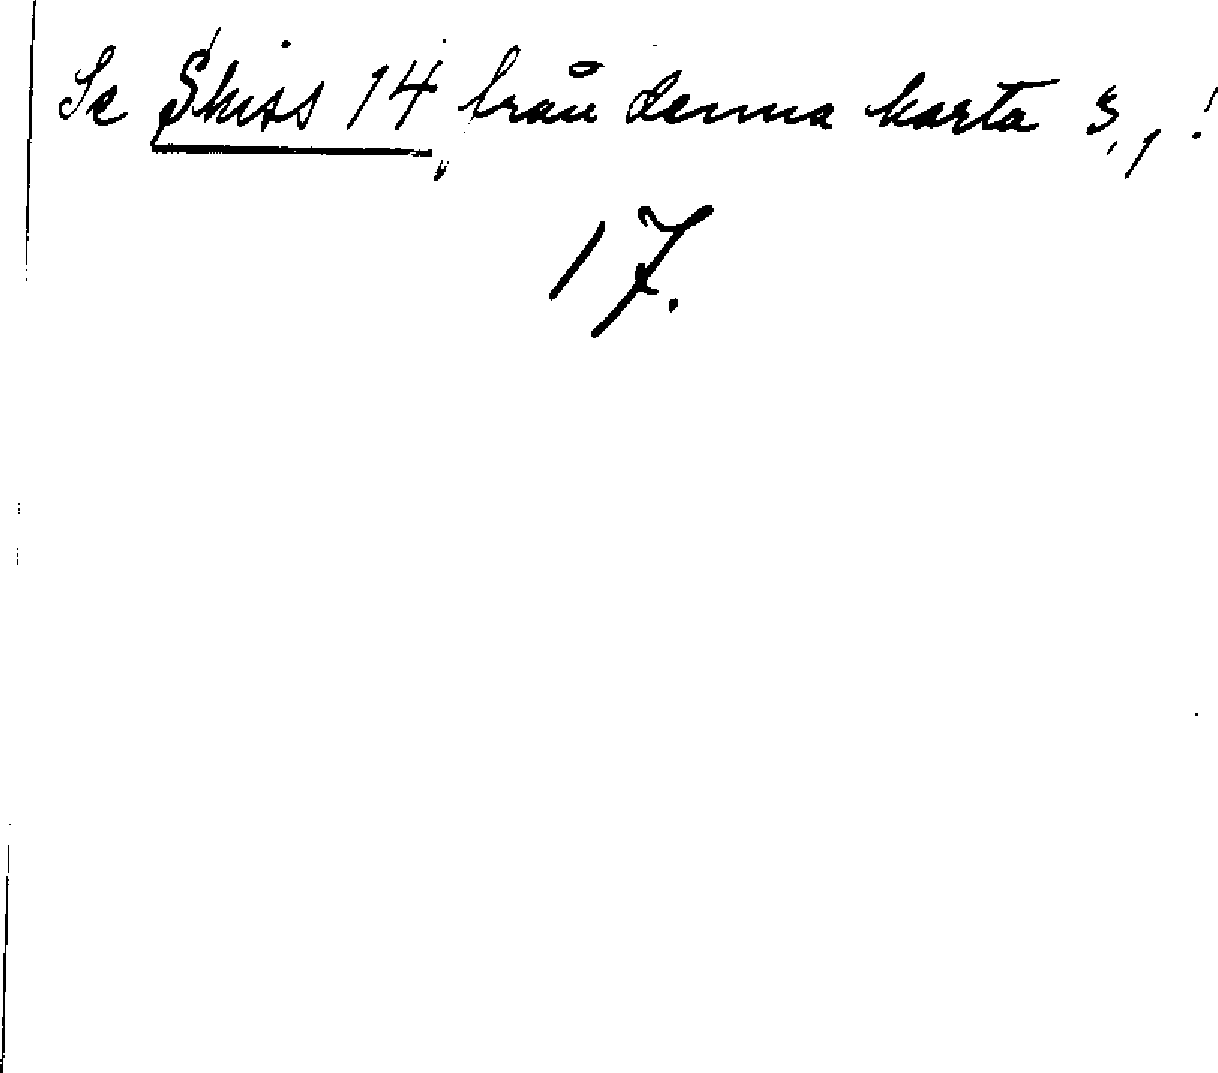 Se Skiss 14 från denna karta
17.